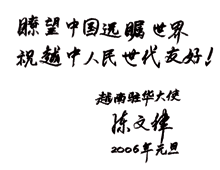 瞭望中国远瞩世界
祝越中人民世代友好!
越南驻华大使
陈文律
2006年元旦